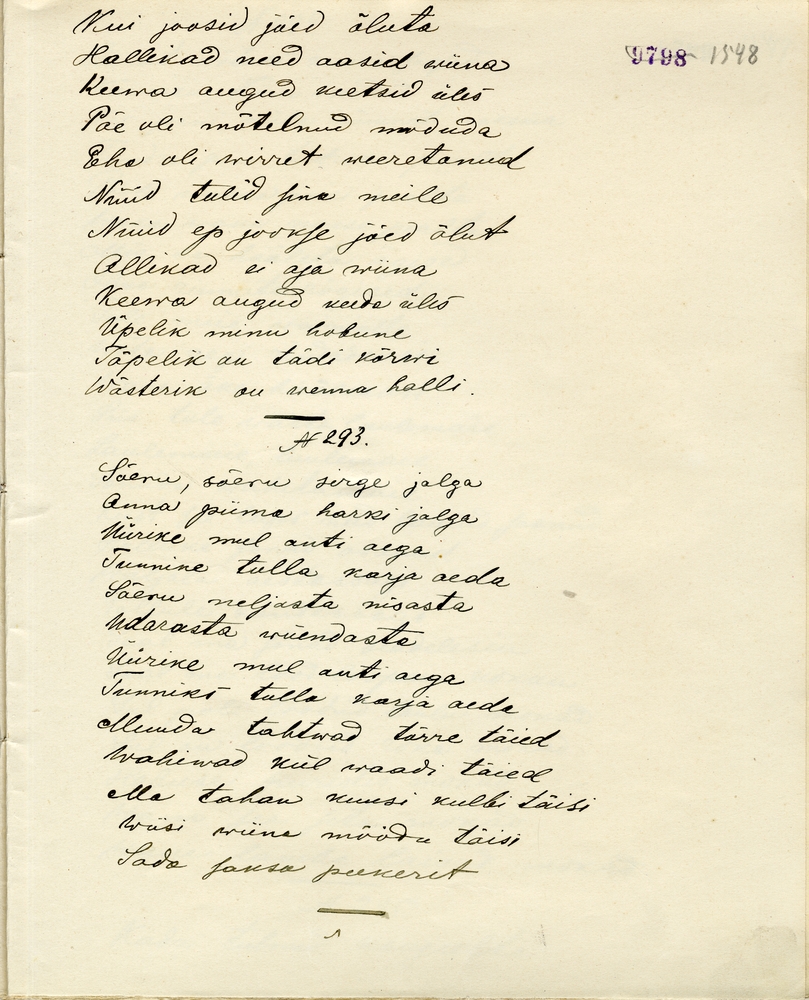 Kui joosid jõed õluta
Hallikad need aasid wiina
Keewa augud keetsid üles
Päe oli mõtelnud mõduda
Eha oli wirret weeretanud
Nüüd tulid sina meile
Nüüd ep jookse jõed õlut
Allikad ei aja wiina
Keewa augud keeda üles
Üpelik minu hobune
Täpelik on tädi kõrwi
Wästerik on wenna halli.
№ 293.
Sõeru, sõeru sirge jalga
Anna piima harki jalga
Üürike mul anti aega
Tunnike tulla karja aeda
Sõeru neljasta nisasta
Udarasta wiiendasta
Üürike mul anti aega
Tunniks tulla karja aeda
Muuda tahtwad tõrre täied
Wahiwad kül waadi täied
Ma tahan kuusi kulbi täisi
Wiisi wiina mõõdu täisi
Sada saksa peekerit
9798 1548